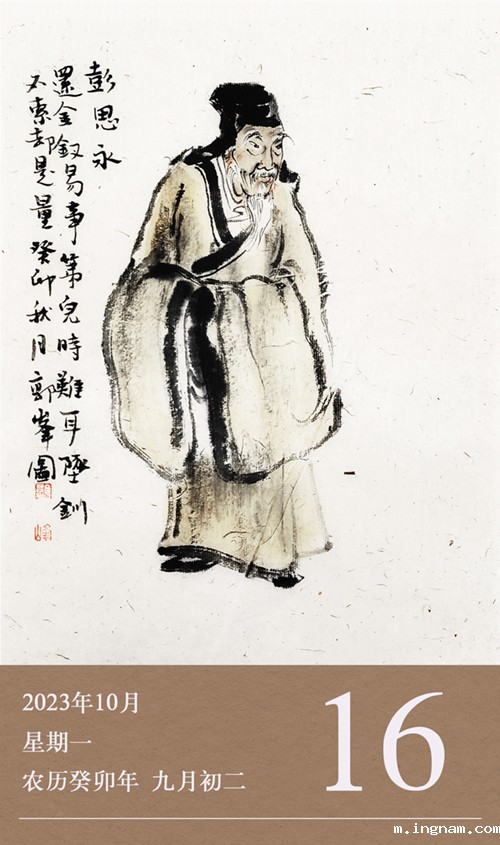 彭思永
還金釵易事第兒時難耳墜釧
不索却是量癸卯秋月郭峯圖
2023年10月
星期一
农历癸卯年 九月初二
16
m.ingnam.com